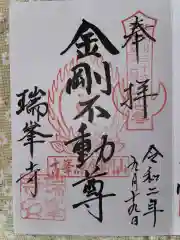 奉拝
令和二年
九月十九日
金剛不動尊
瑞峯寺